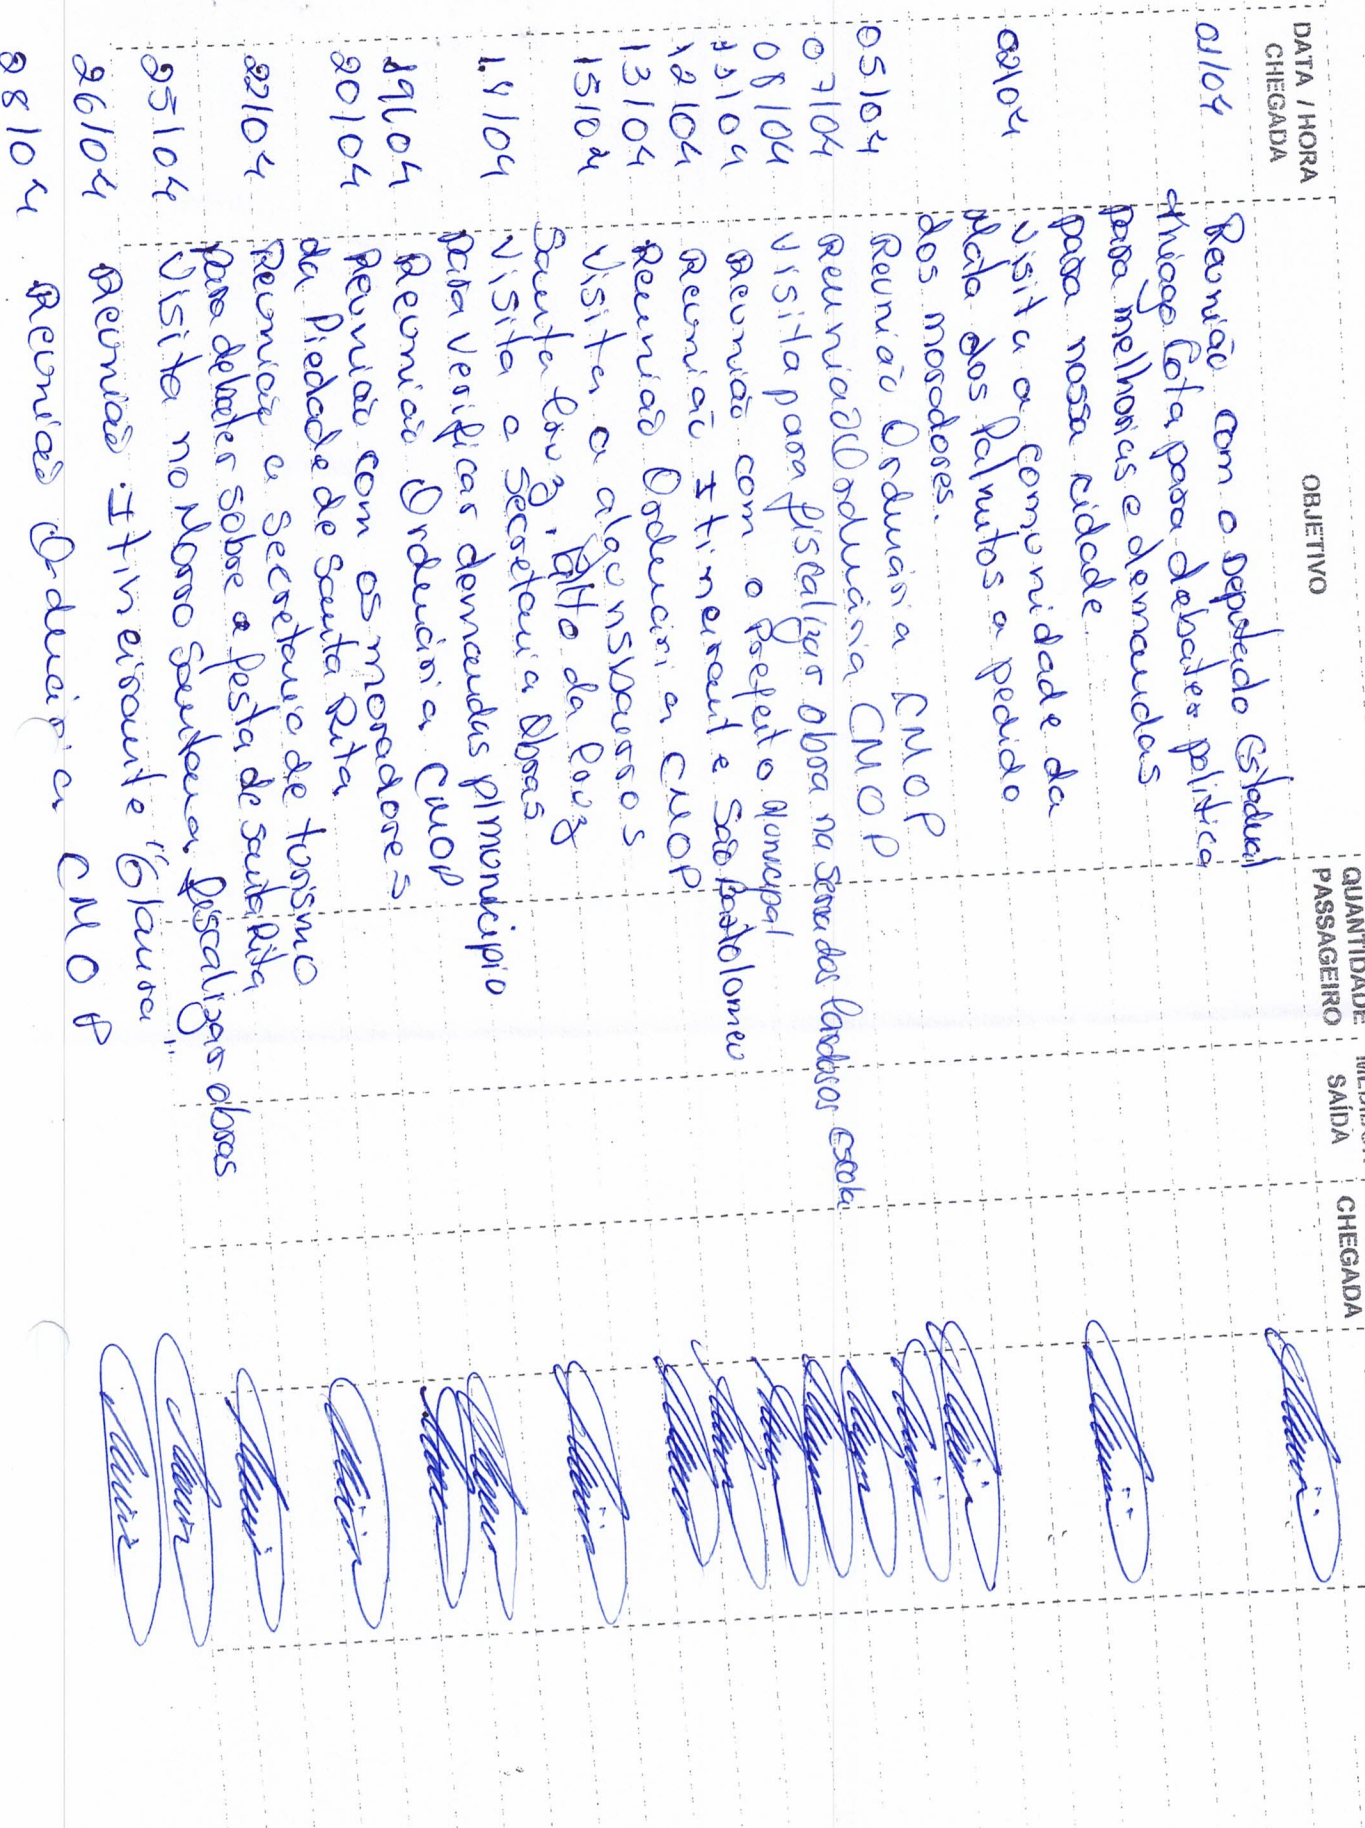 DATA / HORA CHEGADA OBJETIVO QUANTIDADE PASSAGEIRO SAÍDA CHEGADA
01/04 Reunião com o Deputado Estadual
Thiago Cota para debater politica
para melhorias e demandas
para nossa cidade
02/04 visita a comunidade da
Mata dos Palmitos a pedido
dos moradores.
05/04 Reunião Ordinária CMOP
07/04 Reunião Ordinária CMOP
08/04 visita para fiscalizar obra na Serra dos Cardosos Escola
11/04 Reunião com o Prefeito Municipal
12/04 Reunião Itinerante São Bartolomeu
13/04 Reunião Ordinaria CMOP
15/04 Visita a alguns bairros
Santa Cruz, Alto da Cruz
/04 visita a Secretaria Obras
para verificar demandas p/ municipio
19/04 Reunião Ordinária CMOP
20/04 Reunião com os moradores
da Piedade de Santa Rita
22/04 Reunião a Secretaria de turismo
para debater sobre a festa de Santa Rita
25/04 visita no Morro Santana, fiscalizar obras
26/04 Reunião Itineirante "Glaura"
28/04 Reunião Ordinária CMOP